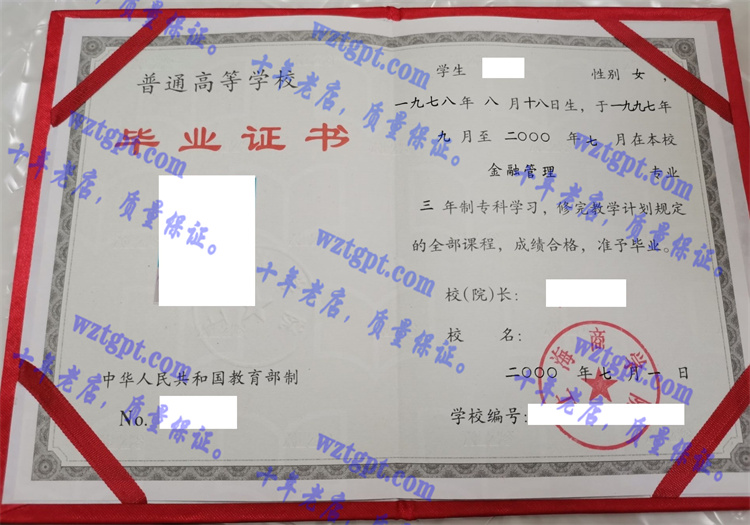 普通高等学校
毕业证书
中华人民共和国教育部制
No.
学生 性别 女，
一九七八年 八 月十八日生，于一九九七年
九 月至 二〇〇〇 年 七 月在本校
金融管理 专业
三 年制专科学习，修完教学计划规定
的全部课程，成绩合格，准予毕业。
校(院)长：
校 名：
二〇〇〇 年 七 月 一 日
学校编号:
海商学
wztgpt.com
十年老店，质量保证。
wztgpt.com
十年老店，质量保证。
wztgpt.com
十年老店，质量保证。
wztgpt.com
十年老店，质量保证。
wztgpt.com
十年老店，质量保证。
wztgpt.com
十年老店，质量保证。
wztgpt.com
十年老店，质量保证。
wztgpt.com
十年老店，质量保证。